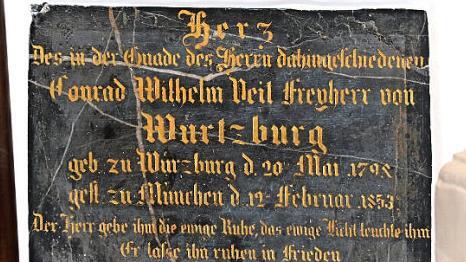 Herz
Des in der Gnade des Herrn dahingeschiedenen
Conrad Wilhelm Veit Freyherr von
Wurtzburg
geb. zu Würzburg d. 20 Mai 1798
gest. zu München d. 12 Februar 1853
Der Herr gebe ihm die ewige Ruhe, das ewige Licht leuchte ihm
Er lasse ihn ruhen in Frieden